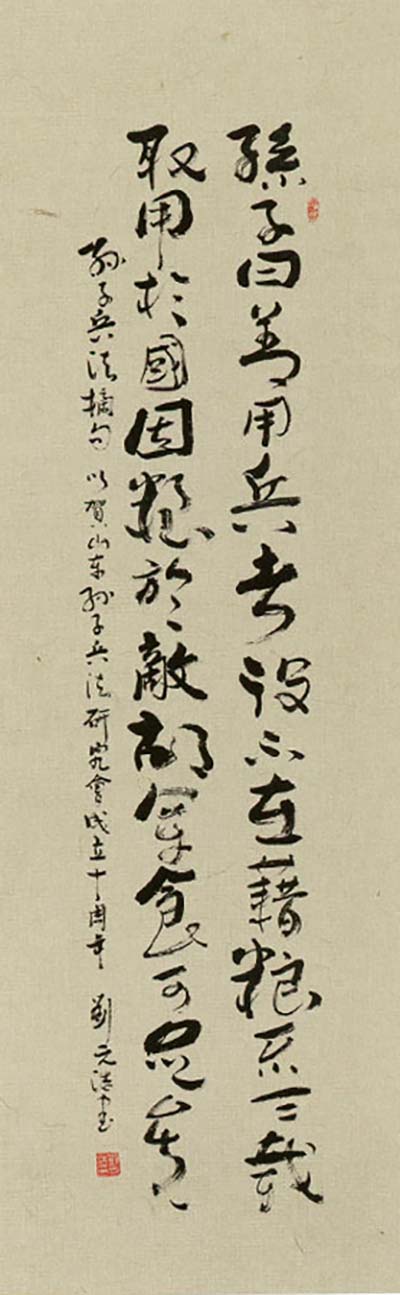 孫子曰善用兵者役不再藉粮不三載
取用於國因糧於敵故軍食可足
孙子兵法摘句 以賀山东孙子兵法研究會成立十周年 劉元